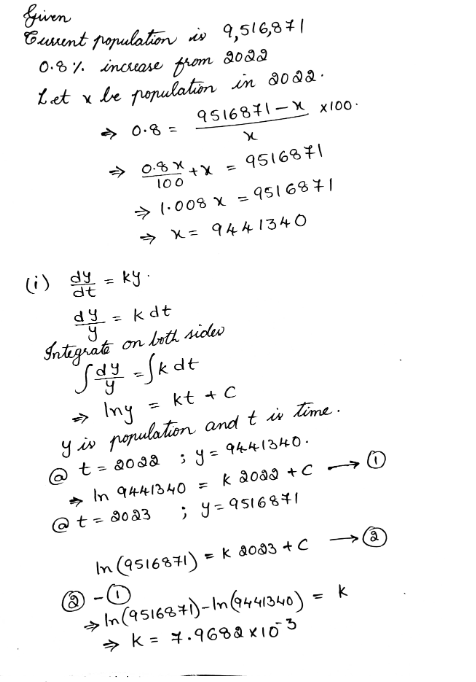 Given
Current population is 9,516,871
0.8% increase from 2022
Let x be population in 2022.
⇒ 0.8 = (9516871 - x)/x x100.
⇒ 0.8x/100 + x = 9516871
⇒ 1.008 x = 9516871
⇒ x = 9441340
(i) dy/dt = ky.
dy/y = k dt
Integrate on both sides
∫ dy/y = ∫ k dt
⇒ ln y = kt + C
y is population and t is time.
@ t = 2022 ; y = 9441340.
⇒ ln 9441340 = k 2022 + C → ①
@ t = 2023 ; y = 9516871
ln (9516871) = k 2023 + C → ②
② - ①
⇒ ln (9516871) - ln (9441340) = k
⇒ k = 7.9682 x 10^-3